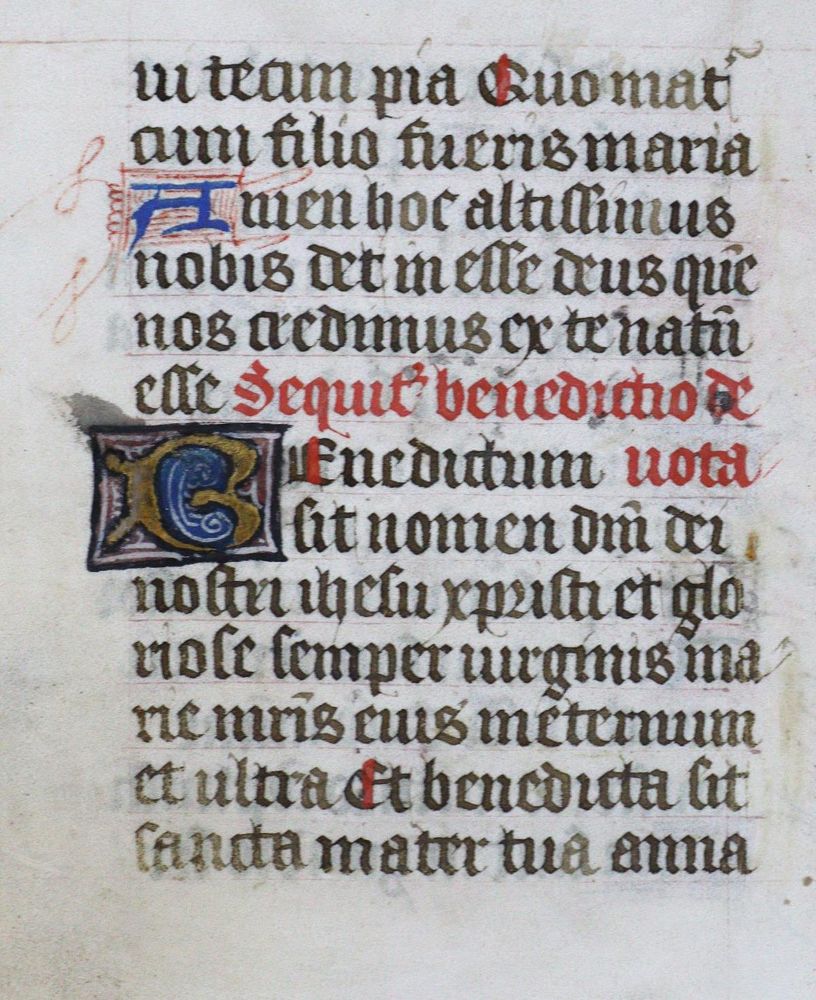 ui tecum pia Quo mat᷑
cum filio fueris maria
Amen hoc altissimus
nobis det in esse deus que̅
nos credimus ex te natū
esse Sequit᷑ benedictio de
Benedictum uota
sit nomen dn̅i dei
nostri ihesu xpristi et glo
riose semper uirginis ma
rie mr̅is eius in eternum
et ultra Et benedicta sit
sancta mater tua anna